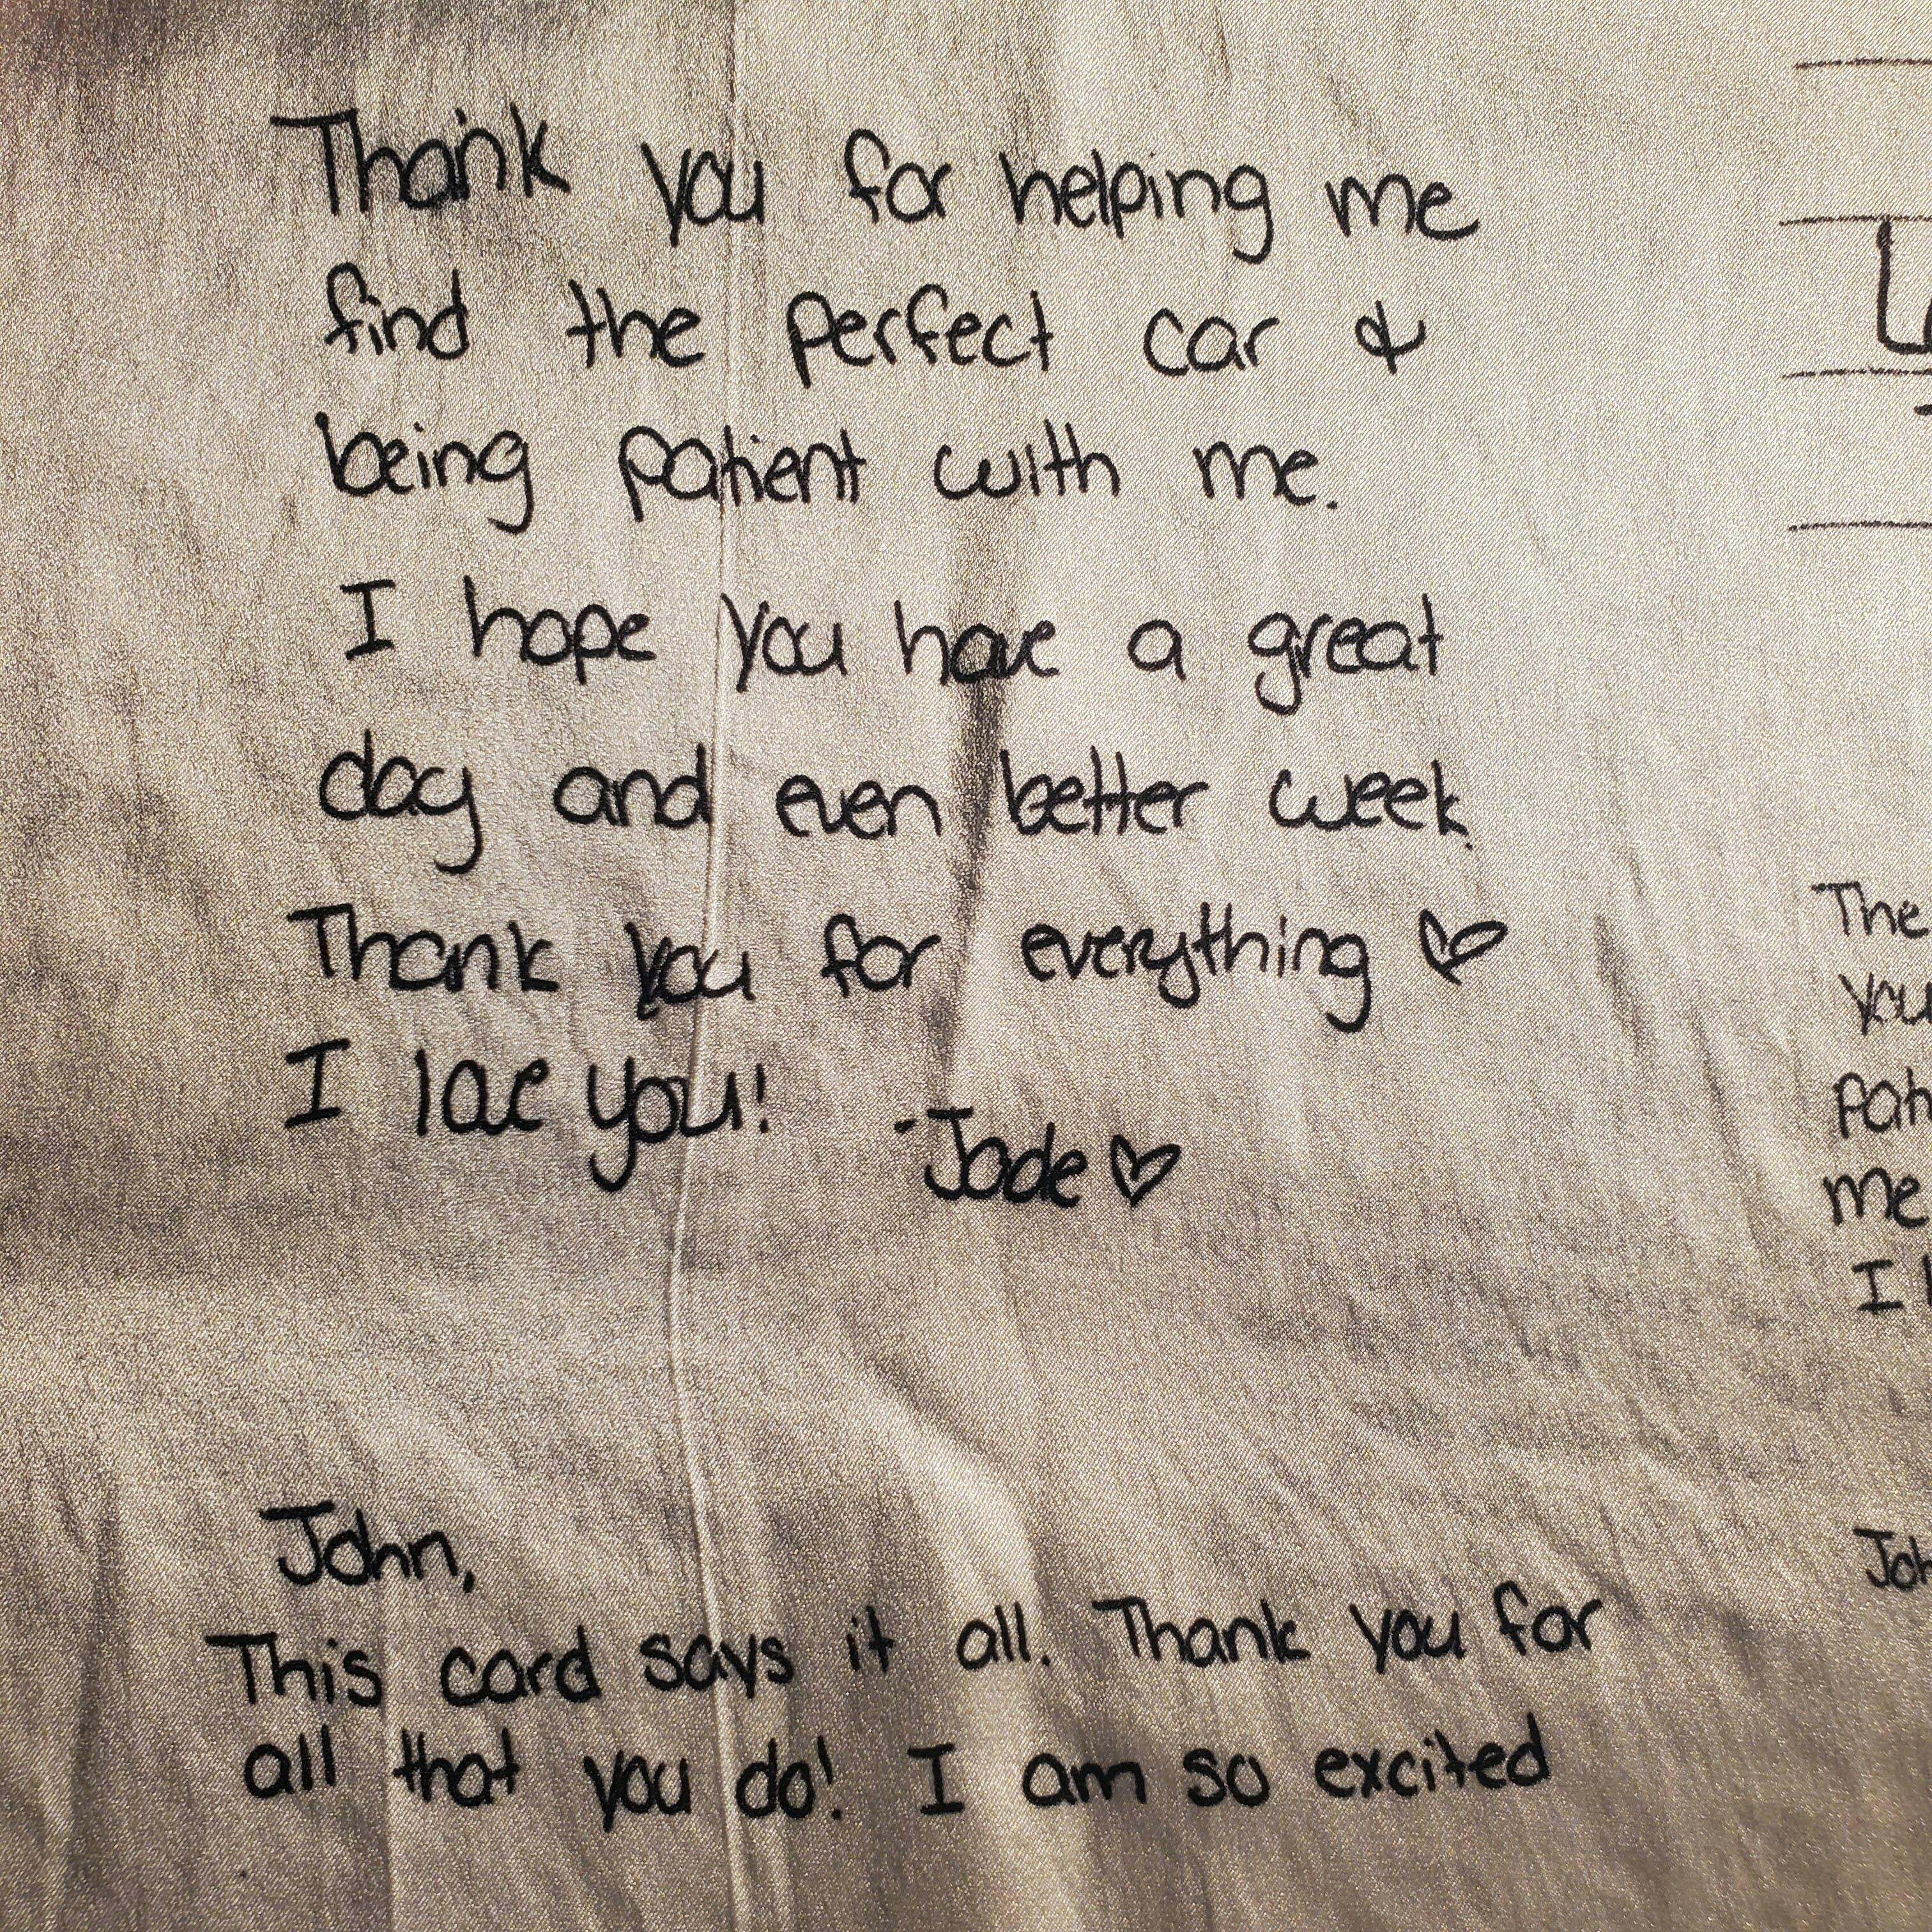 Thank you for helping me
find the perfect car &
being patient with me.
I hope you have a great
day and even better week.
Thank you for everything ♡
I love you!
-Jade ♡
John,
This card says it all. Thank you for
all that you do! I am so excited
The
you
me
I